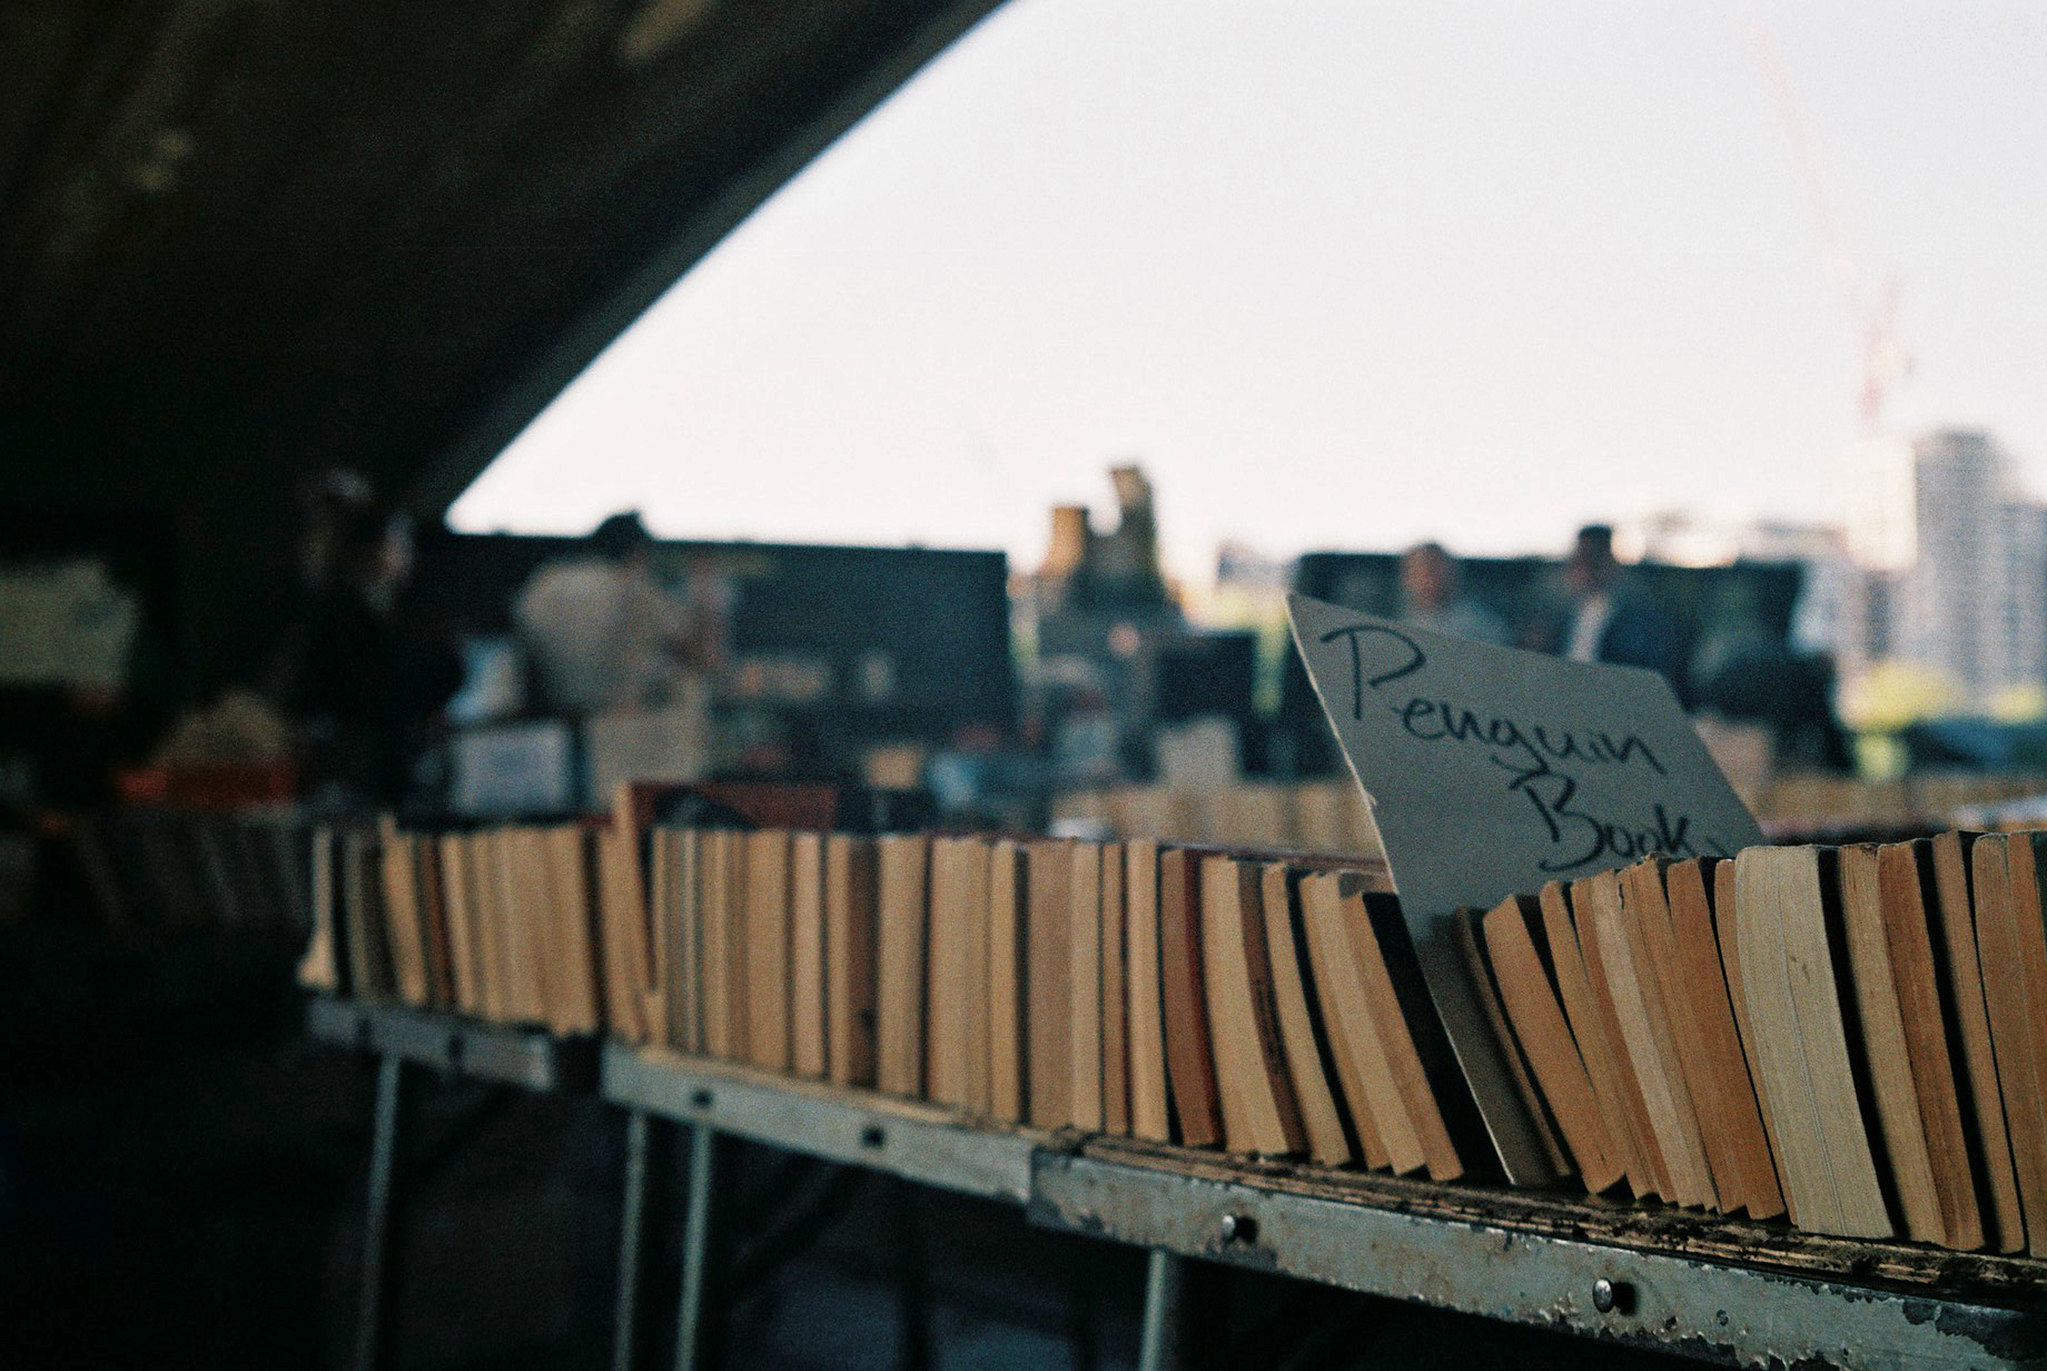 Penguin
Books